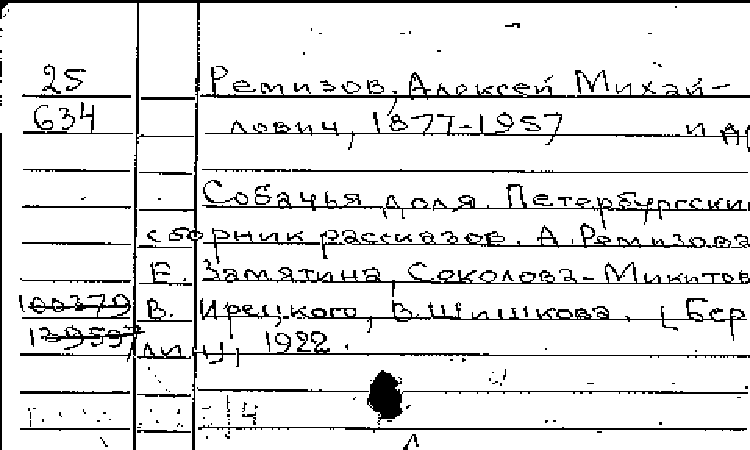 25 Ремизов, Алексей Михай-
634 лович, 1877-1957 и др
Собачья доля. Петербургский
сборник рассказов. А. Ремизова
Е. Замятина, Соколова-Микитов
100379 В. Ирецкого, В. Шишкова. [Бер
лин], 1922.
4